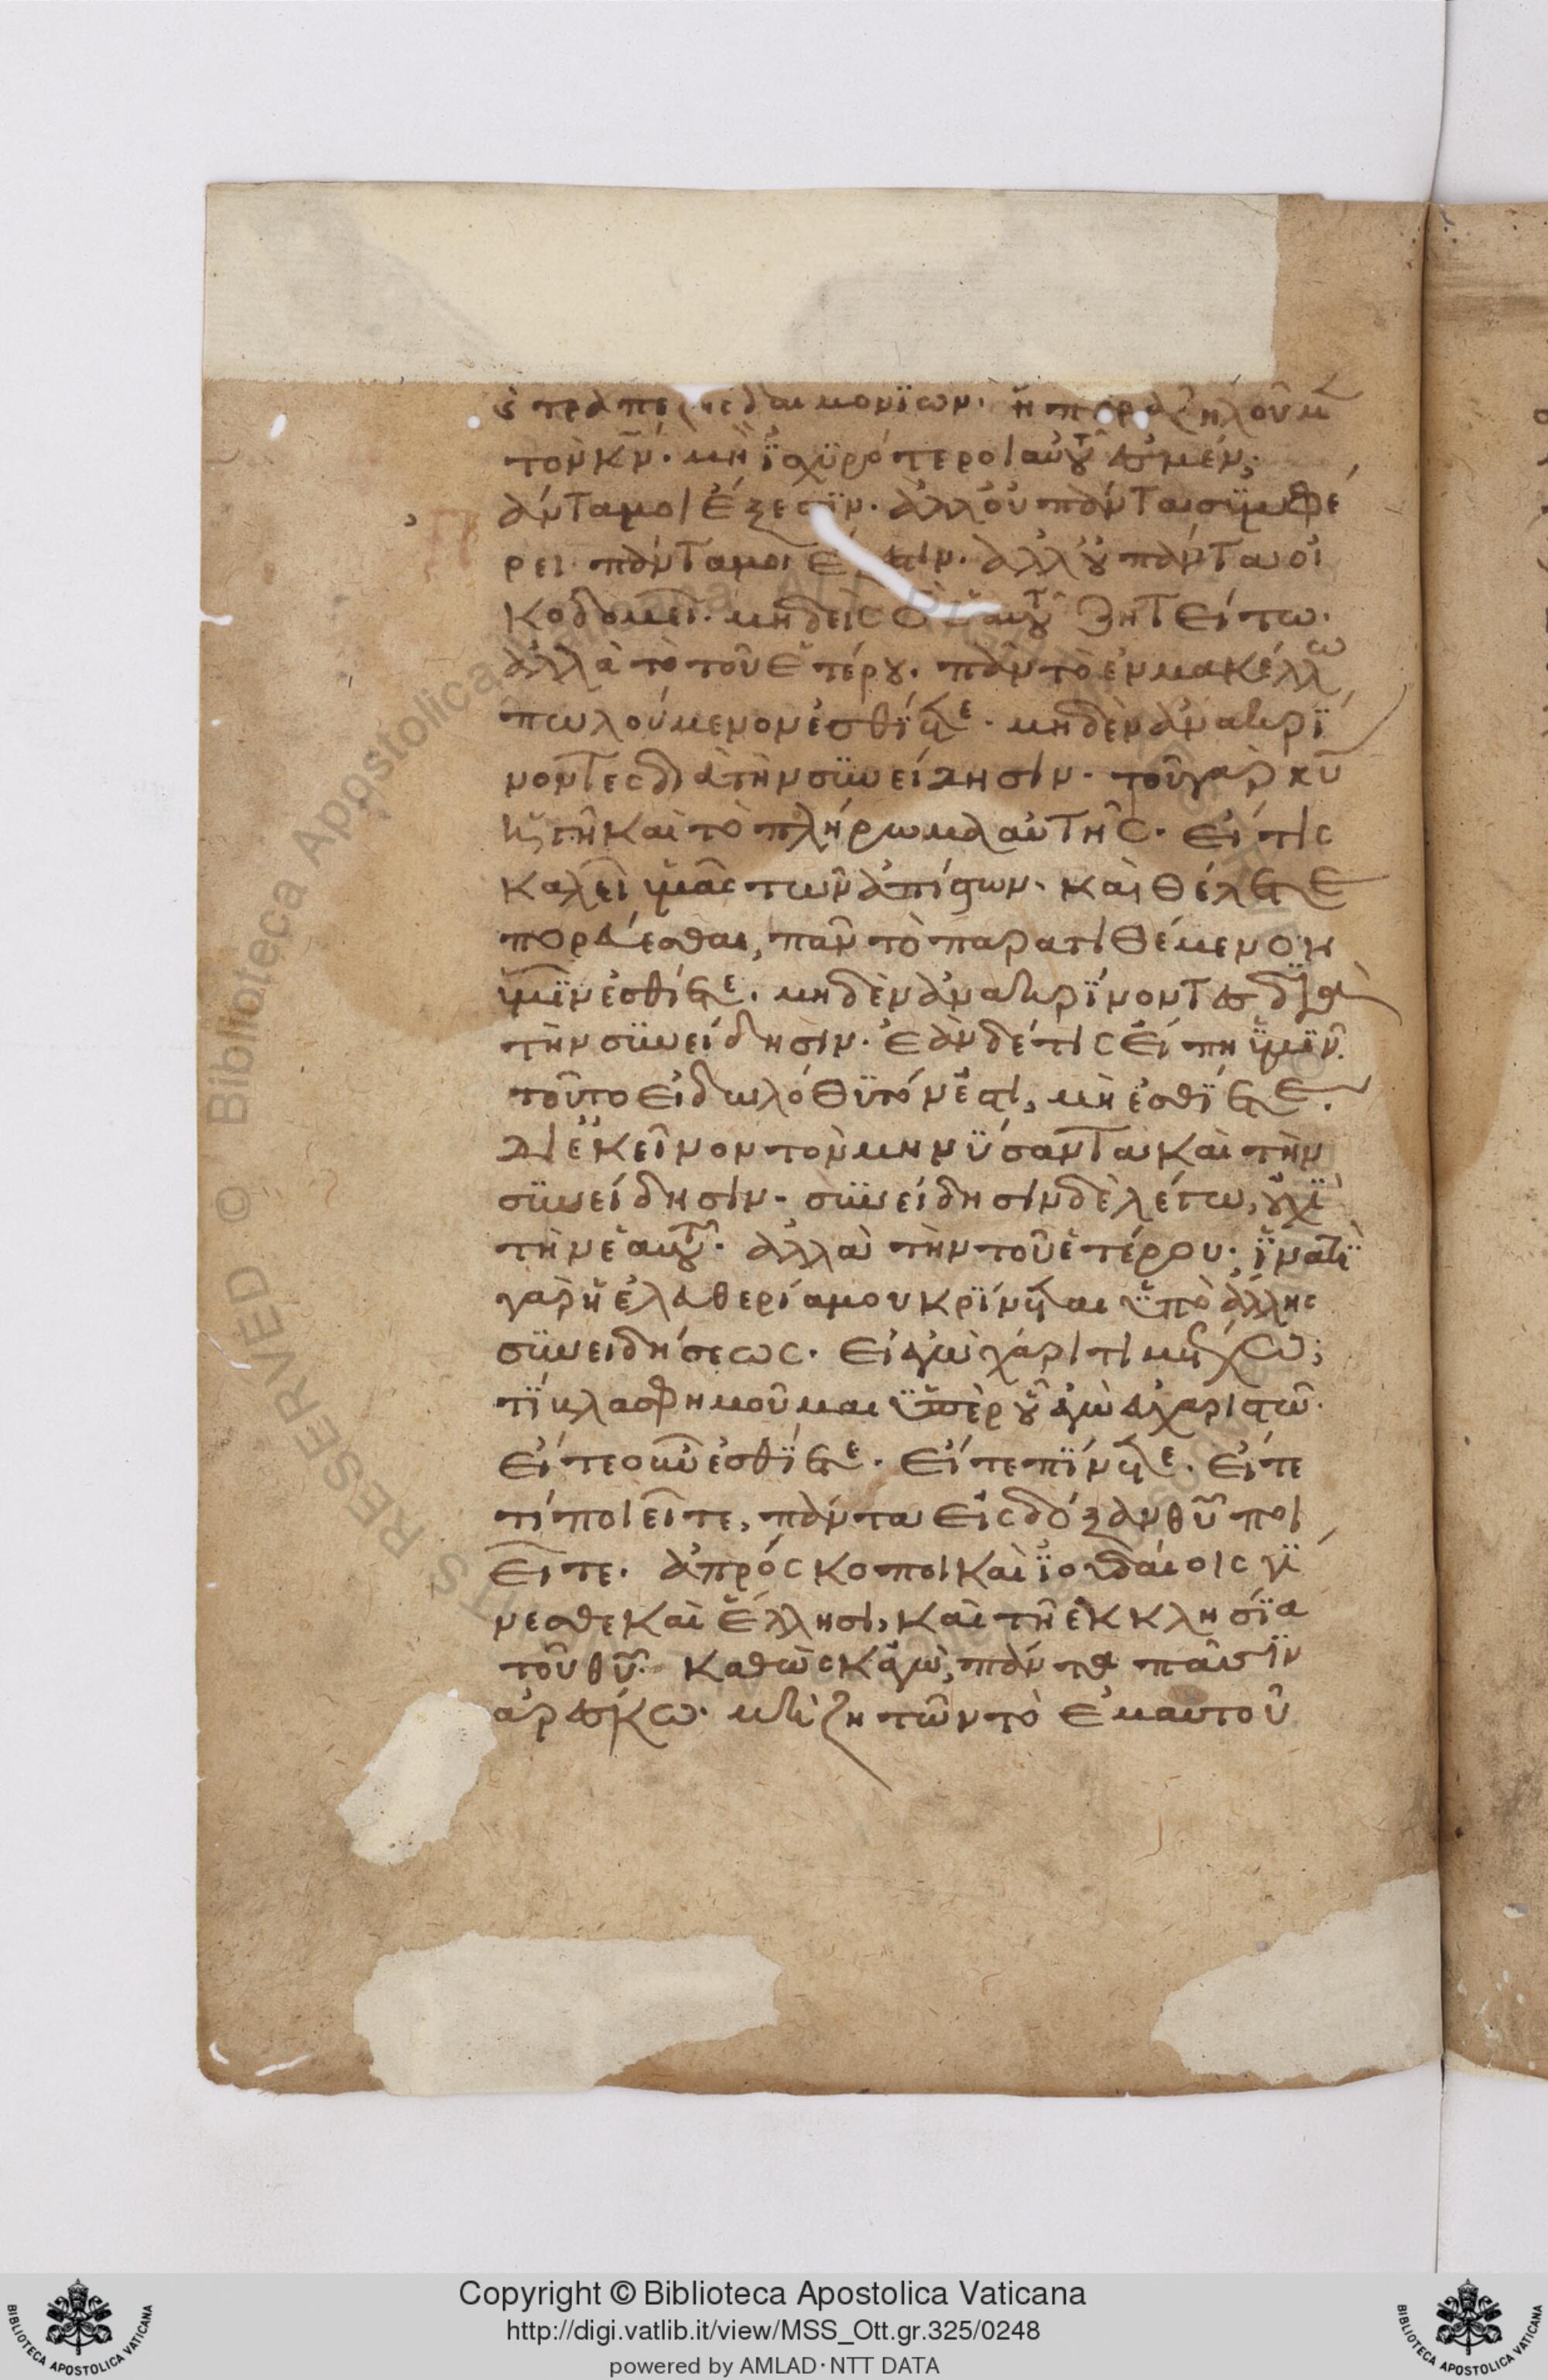 ἐ τραπέζης δαιμονΐων. ἢ παραζηλοῦμ
τὸν κν. μὴ ἰσχϋρότεροι αὐτοῦ ἐσμέν;
άντα μοι ἔξεστϊν. ἀλλ οὐ πάντα συμφέ
ρει πάντα μοι ἔξεστιν. ἀλλ οὐ πάντα οἰ
κοδομεῖ. μηδεὶς τὸ ἑαυτοῦ ζητείτω.
ἀλλὰ τὸ τοῦ ἑτέρου. πᾶν τὸ ἐν μακέλλω
πωλούμενον ἐσθΐεται. μηδὲν ἀνακρΐ
νοντες διὰ τὴν συνείδησιν. τοῦ γὰρ κυ
ἡ γῆ καὶ τὸ πλήρωμα αὐτῆς. εἴ τις
καλεῖ ὑμᾶς τῶν ἀπίστων. καὶ θέλετε
πορεύεσθαι, πᾶν τὸ παρατιθέμενον
ὑμῖν ἐσθίετε. μηδὲν ἀνακρΐνοντες διὰ
τὴν συνείδησιν. ἐὰν δέ τις εἴπη ὑμῖν.
τοῦτο εἰδωλόθϋτόν ἐστι, μὴ ἐσθΐετε.
δι ἐκεῖνον τὸν μηνϋσαντα καὶ τὴν
συνείδησιν. συνείδησιν δὲ λέγω, οὐχῒ
τὴν ἑαυτοῦ. ἀλλὰ τὴν τοῦ ἑτέρου. ἵνα τΐ
γὰρ ἡ ἐλευθερία μου κρΐνεται ὑπὸ ἄλλης
συνειδήσεως. εἰ ἐγὼ χάριτι μετέχω;
τΐ βλασφημοῦμαι ὑπὲρ οὗ ἐγὼ εὐχαριστῶ.
εἴτε οὖν ἐσθΐετε. εἴτε πΐνεται. εἴτε
τί ποιεῖτε, πάντα εἰς δόξαν θυ ποι
εῖτε. ἀπρόσκοποι καὶ ϊουδαίοις γΐ
νεσθε καὶ ἕλλησι, καὶ τῆ ἐκκλησΐα
τοῦ θυ. καθὼς κἀγὼ, πάντα πᾶσϊν
ἀρέσκω. μὴ ζητῶν τὸ ἐμαυτοῦ
Copyright © Biblioteca Apostolica Vaticana
http://digi.vatlib.it/view/MSS_Ott.gr.325/0248
powered by AMLAD·NTT DATA